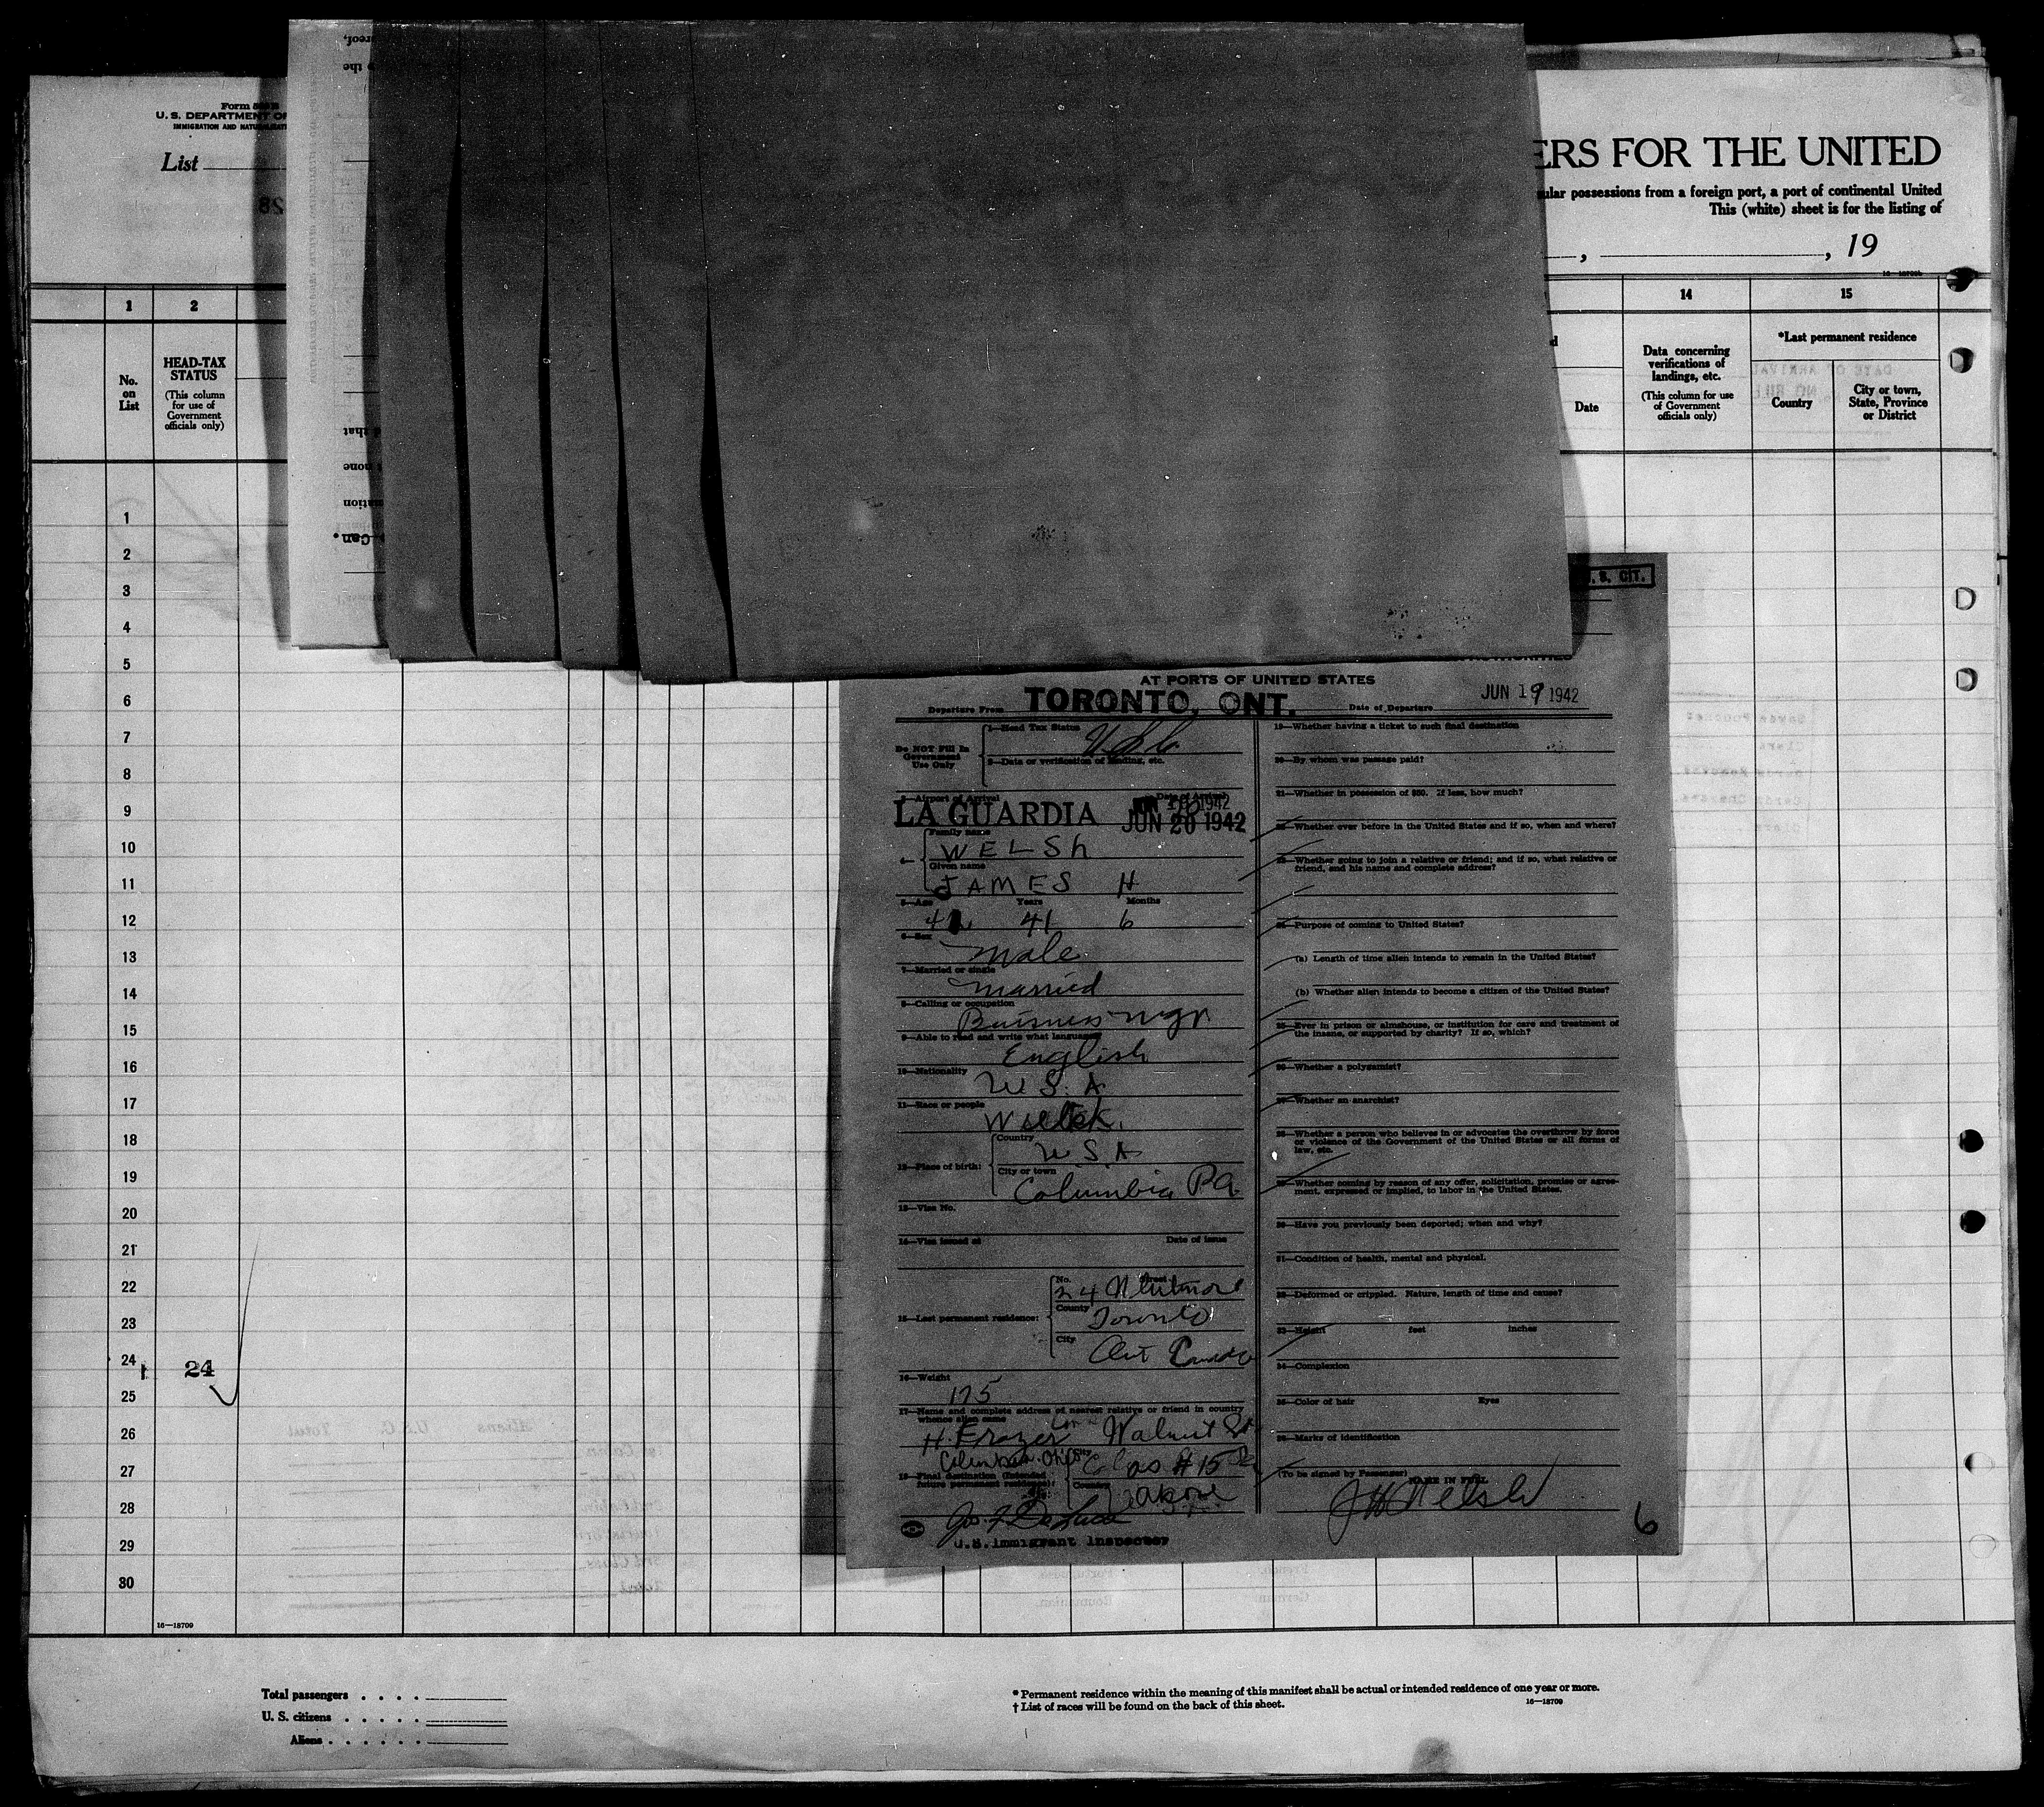 Form
U. S. DEPARTMENT OF
List
ERS FOR THE UNITED
possessions from a foreign port, a port of continental United
This (white) sheet is for the listing of
, , 19
1 2 14 15
No. on List
HEAD-TAX STATUS
(This column for use of Government officials only)
Date
Data concerning verifications of landings, etc.
(This column for use of Government officials only)
*Last permanent residence
Country
City or town, State, Province or District
1
2
3
4
5
6
7
8
9
10
11
12
13
14
15
16
17
18
19
20
21
22
23
24
24
25
26
27
28
29
30
16—18709
S. CIT.
AT PORTS OF UNITED STATES
Departure From TORONTO, ONT. Date of Departure JUN 19 1942
Do NOT Fill In Government Use Only
1—Head Tax Status
2—Data or verification of landing, etc.
3—Airport of Arrival Date of Arrival
LA GUARDIA JUN 20 1942
4—
Family name
WELSh
Given name
JAMES H
5—Age Years Months
41 6
6—Sex
Male
7—Married or single
Married
8—Calling or occupation
9—Able to read and write what language
English
10—Nationality
U S. A
11—Race or people
12—Place of birth:
Country
U. S. A
City or town
Columbia Pa
13—Visa No.
14—Visa issued at Date of issue
15—Last permanent residence:
No. Street
24
County
Toronto
City
Ont Canada
16—Weight
175
17—Name and complete address of nearest relative or friend in country whence alien came
H. Frazer Walnut St
18—Final destination (Intended future permanent residence)
City
as # 15
Country
above
U.S. Immigrant Inspector
19—Whether having a ticket to such final destination
20—By whom was passage paid?
21—Whether in possession of $50. If less, how much?
22—Whether ever before in the United States and if so, when and where?
23—Whether going to join a relative or friend; and if so, what relative or
friend, and his name and complete address?
24—Purpose of coming to United States?
(a) Length of time alien intends to remain in the United States?
(b) Whether alien intends to become a citizen of the United States?
25—Ever in prison or almshouse, or institution for care and treatment of
the insane, or supported by charity? If so, which?
26—Whether a polygamist?
27—Whether an anarchist?
28—Whether a person who believes in or advocates the overthrow by force
or violence of the Government of the United States or all forms of
law, etc.
29—Whether coming by reason of any offer, solicitation, promise or agree-
ment, expressed or implied, to labor in the United States.
30—Have you previously been deported; when and why?
31—Condition of health, mental and physical.
32—Deformed or crippled. Nature, length of time and cause?
33—Height feet inches
34—Complexion
35—Color of hair Eyes
36—Marks of identification
(To be signed by Passenger) NAME IN FULL
J H Welsh
6
Total passengers . . . .
U. S. citizens . . . . .
Aliens . . . . . .
* Permanent residence within the meaning of this manifest shall be actual or intended residence of one year or more.
† List of races will be found on the back of this sheet.
16—18709